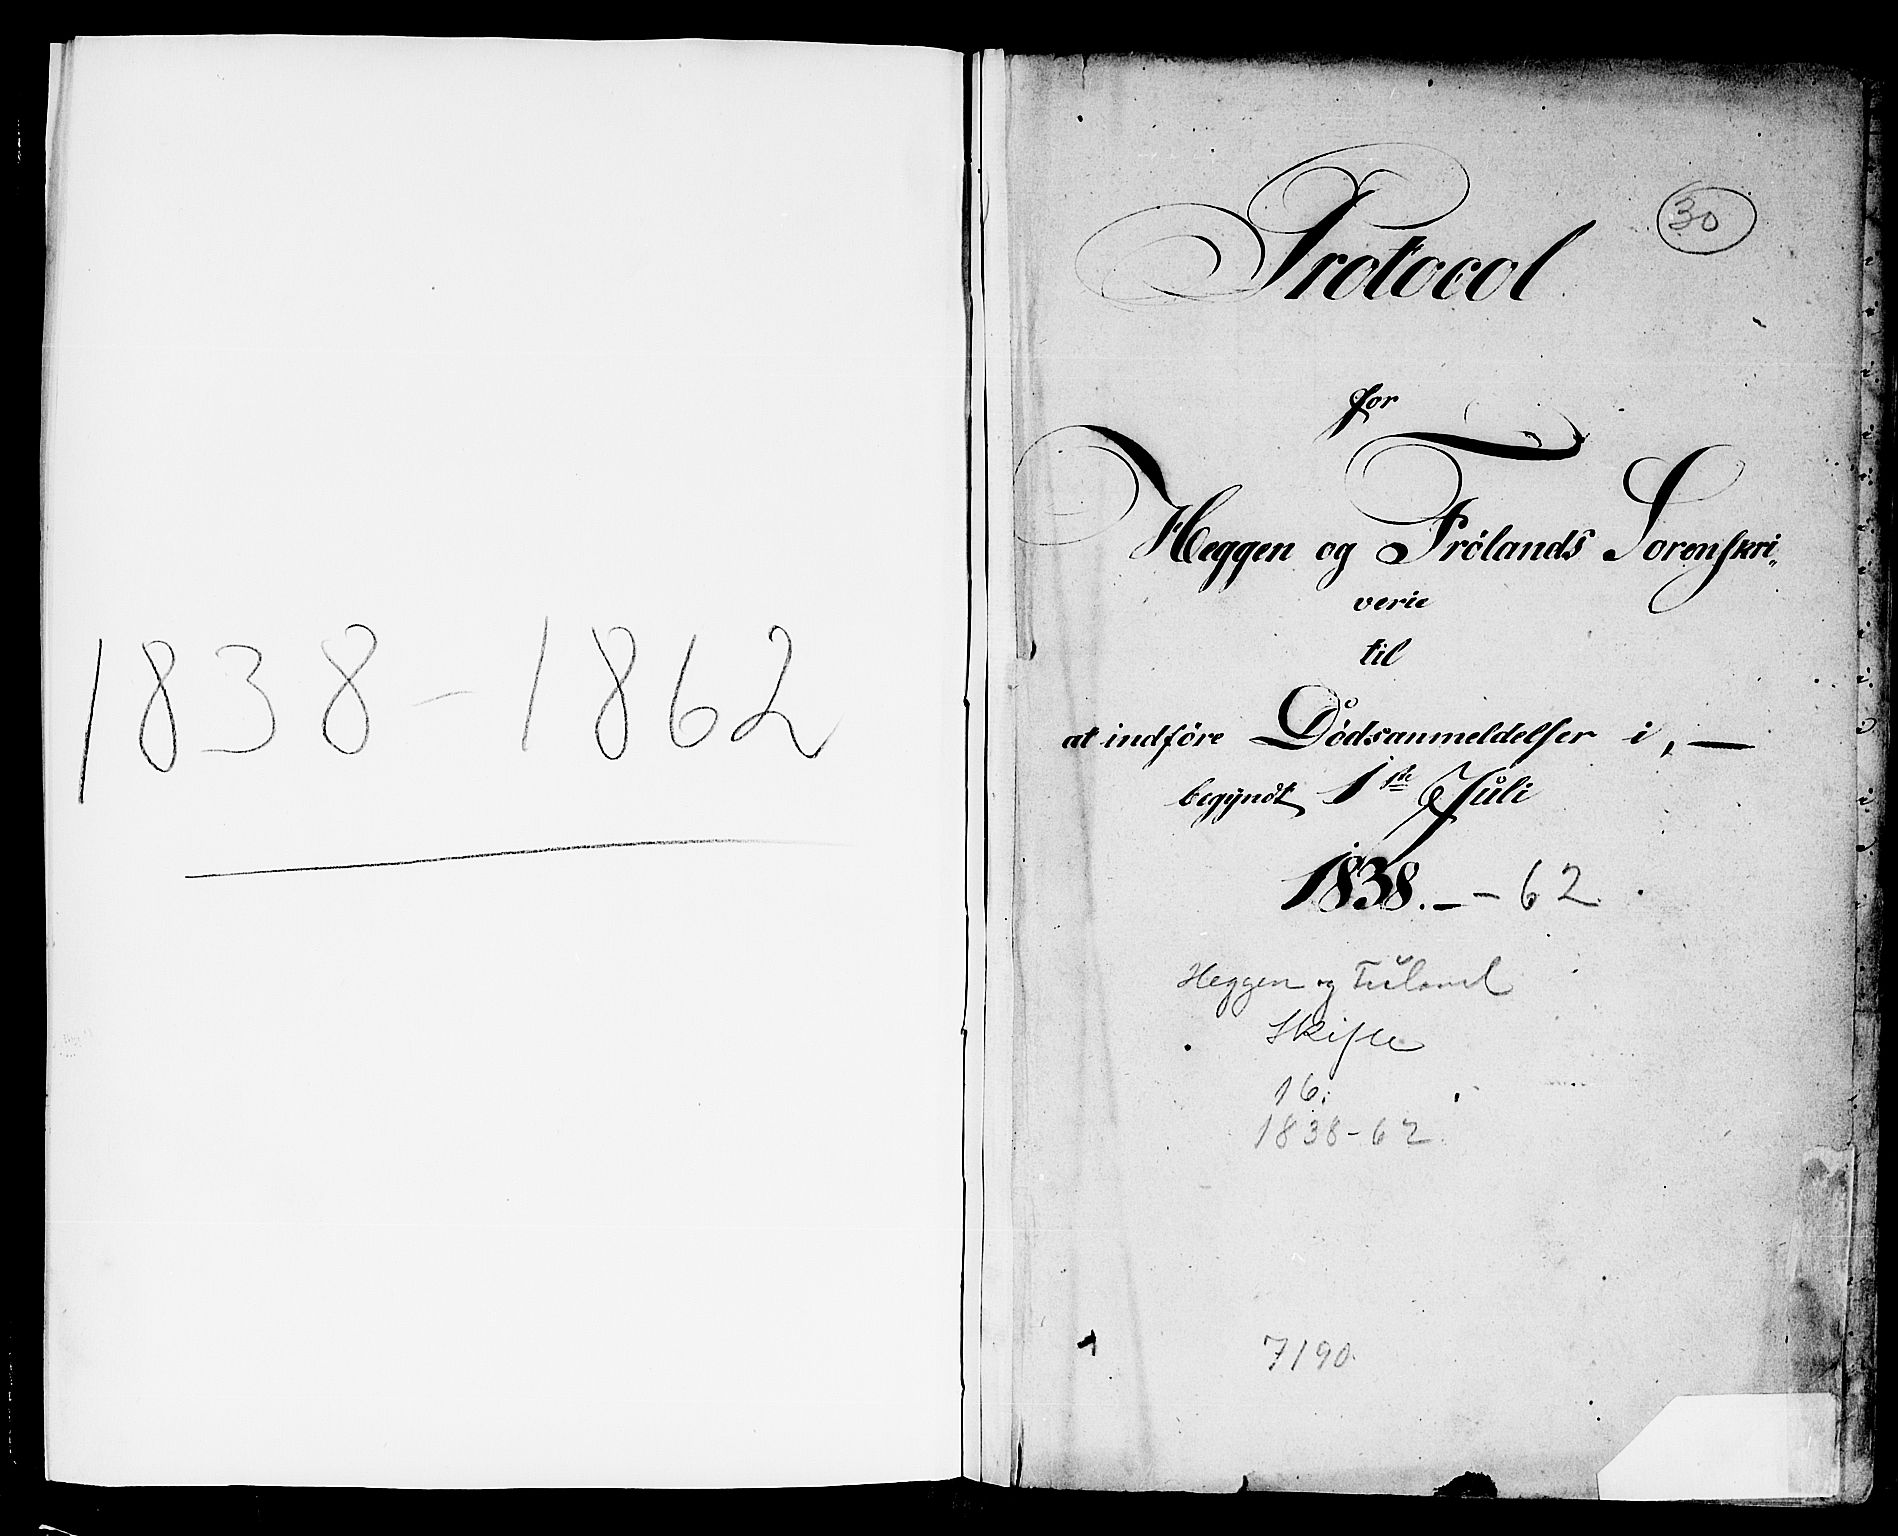 1838 - 1862
30
Protocol
for
Heggen og Frølands Sorenskri„
verie
til
at indföre Dödsanmeldelser i, —
begyndt 1ste Juli
1838. — - 62
Heggen og Fröland
Skifte
16.
1838-62
7190.